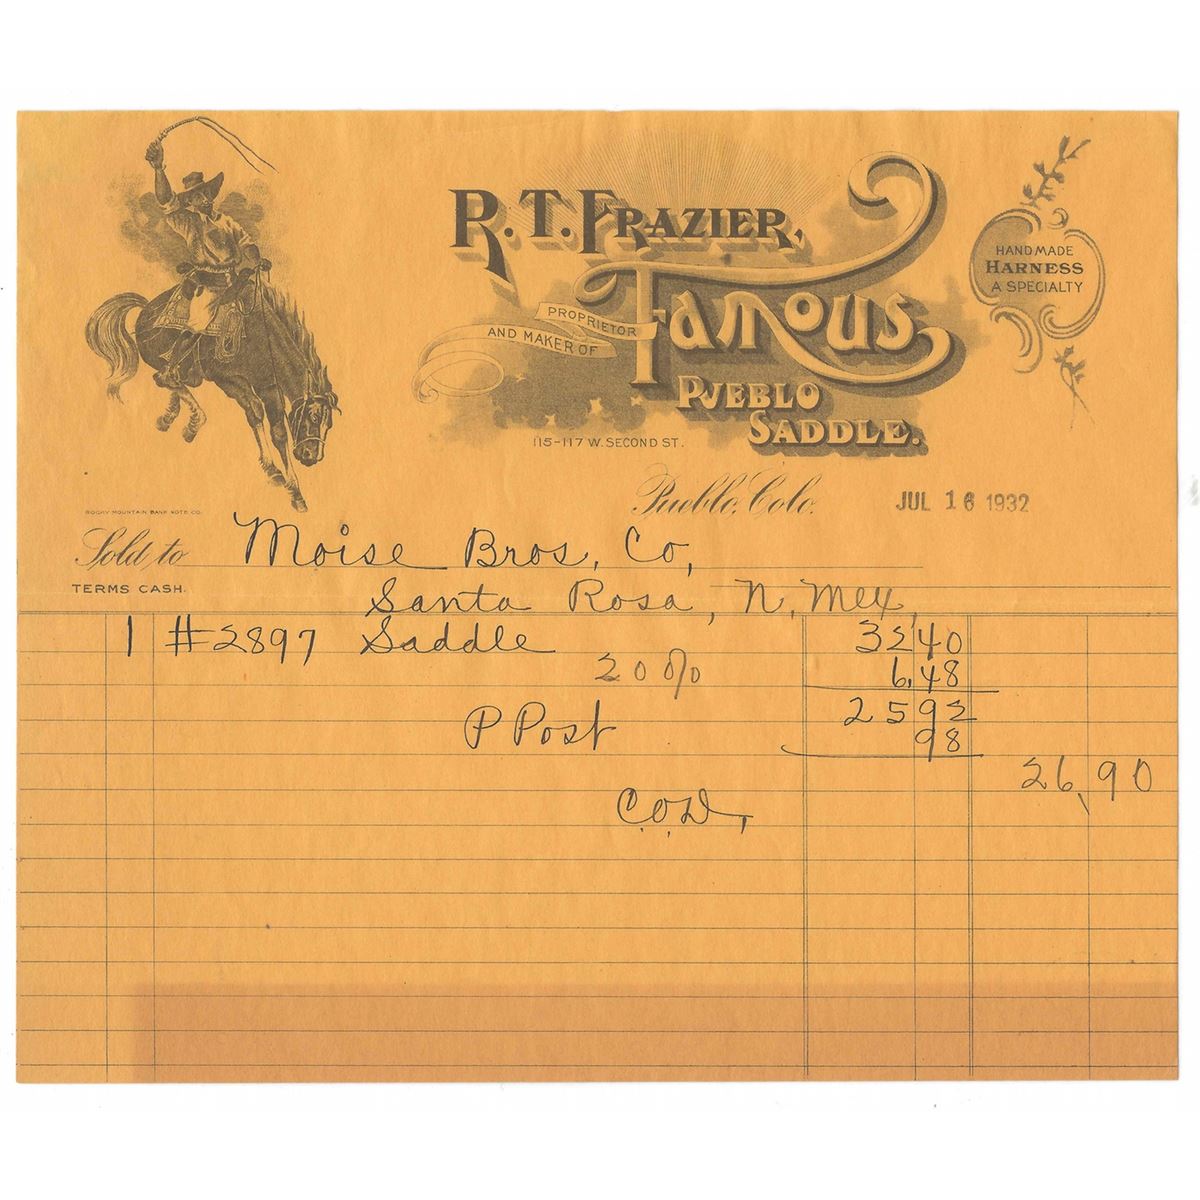 R. T. FRAZIER,
PROPRIETOR
AND MAKER OF
FAMOUS
PUEBLO
SADDLE.
HAND MADE
HARNESS
A SPECIALTY
115-117 W. SECOND ST.
Pueblo, Colo. JUL 16 1932
ROCKY MOUNTAIN BANK NOTE CO.
Sold to Moise Bros, Co,
TERMS CASH.
Santa Rosa, N, Mex,
1 #2897 Saddle 32 40
20 % 6,48
25 92
P Post 98
26,90
C.O.D,